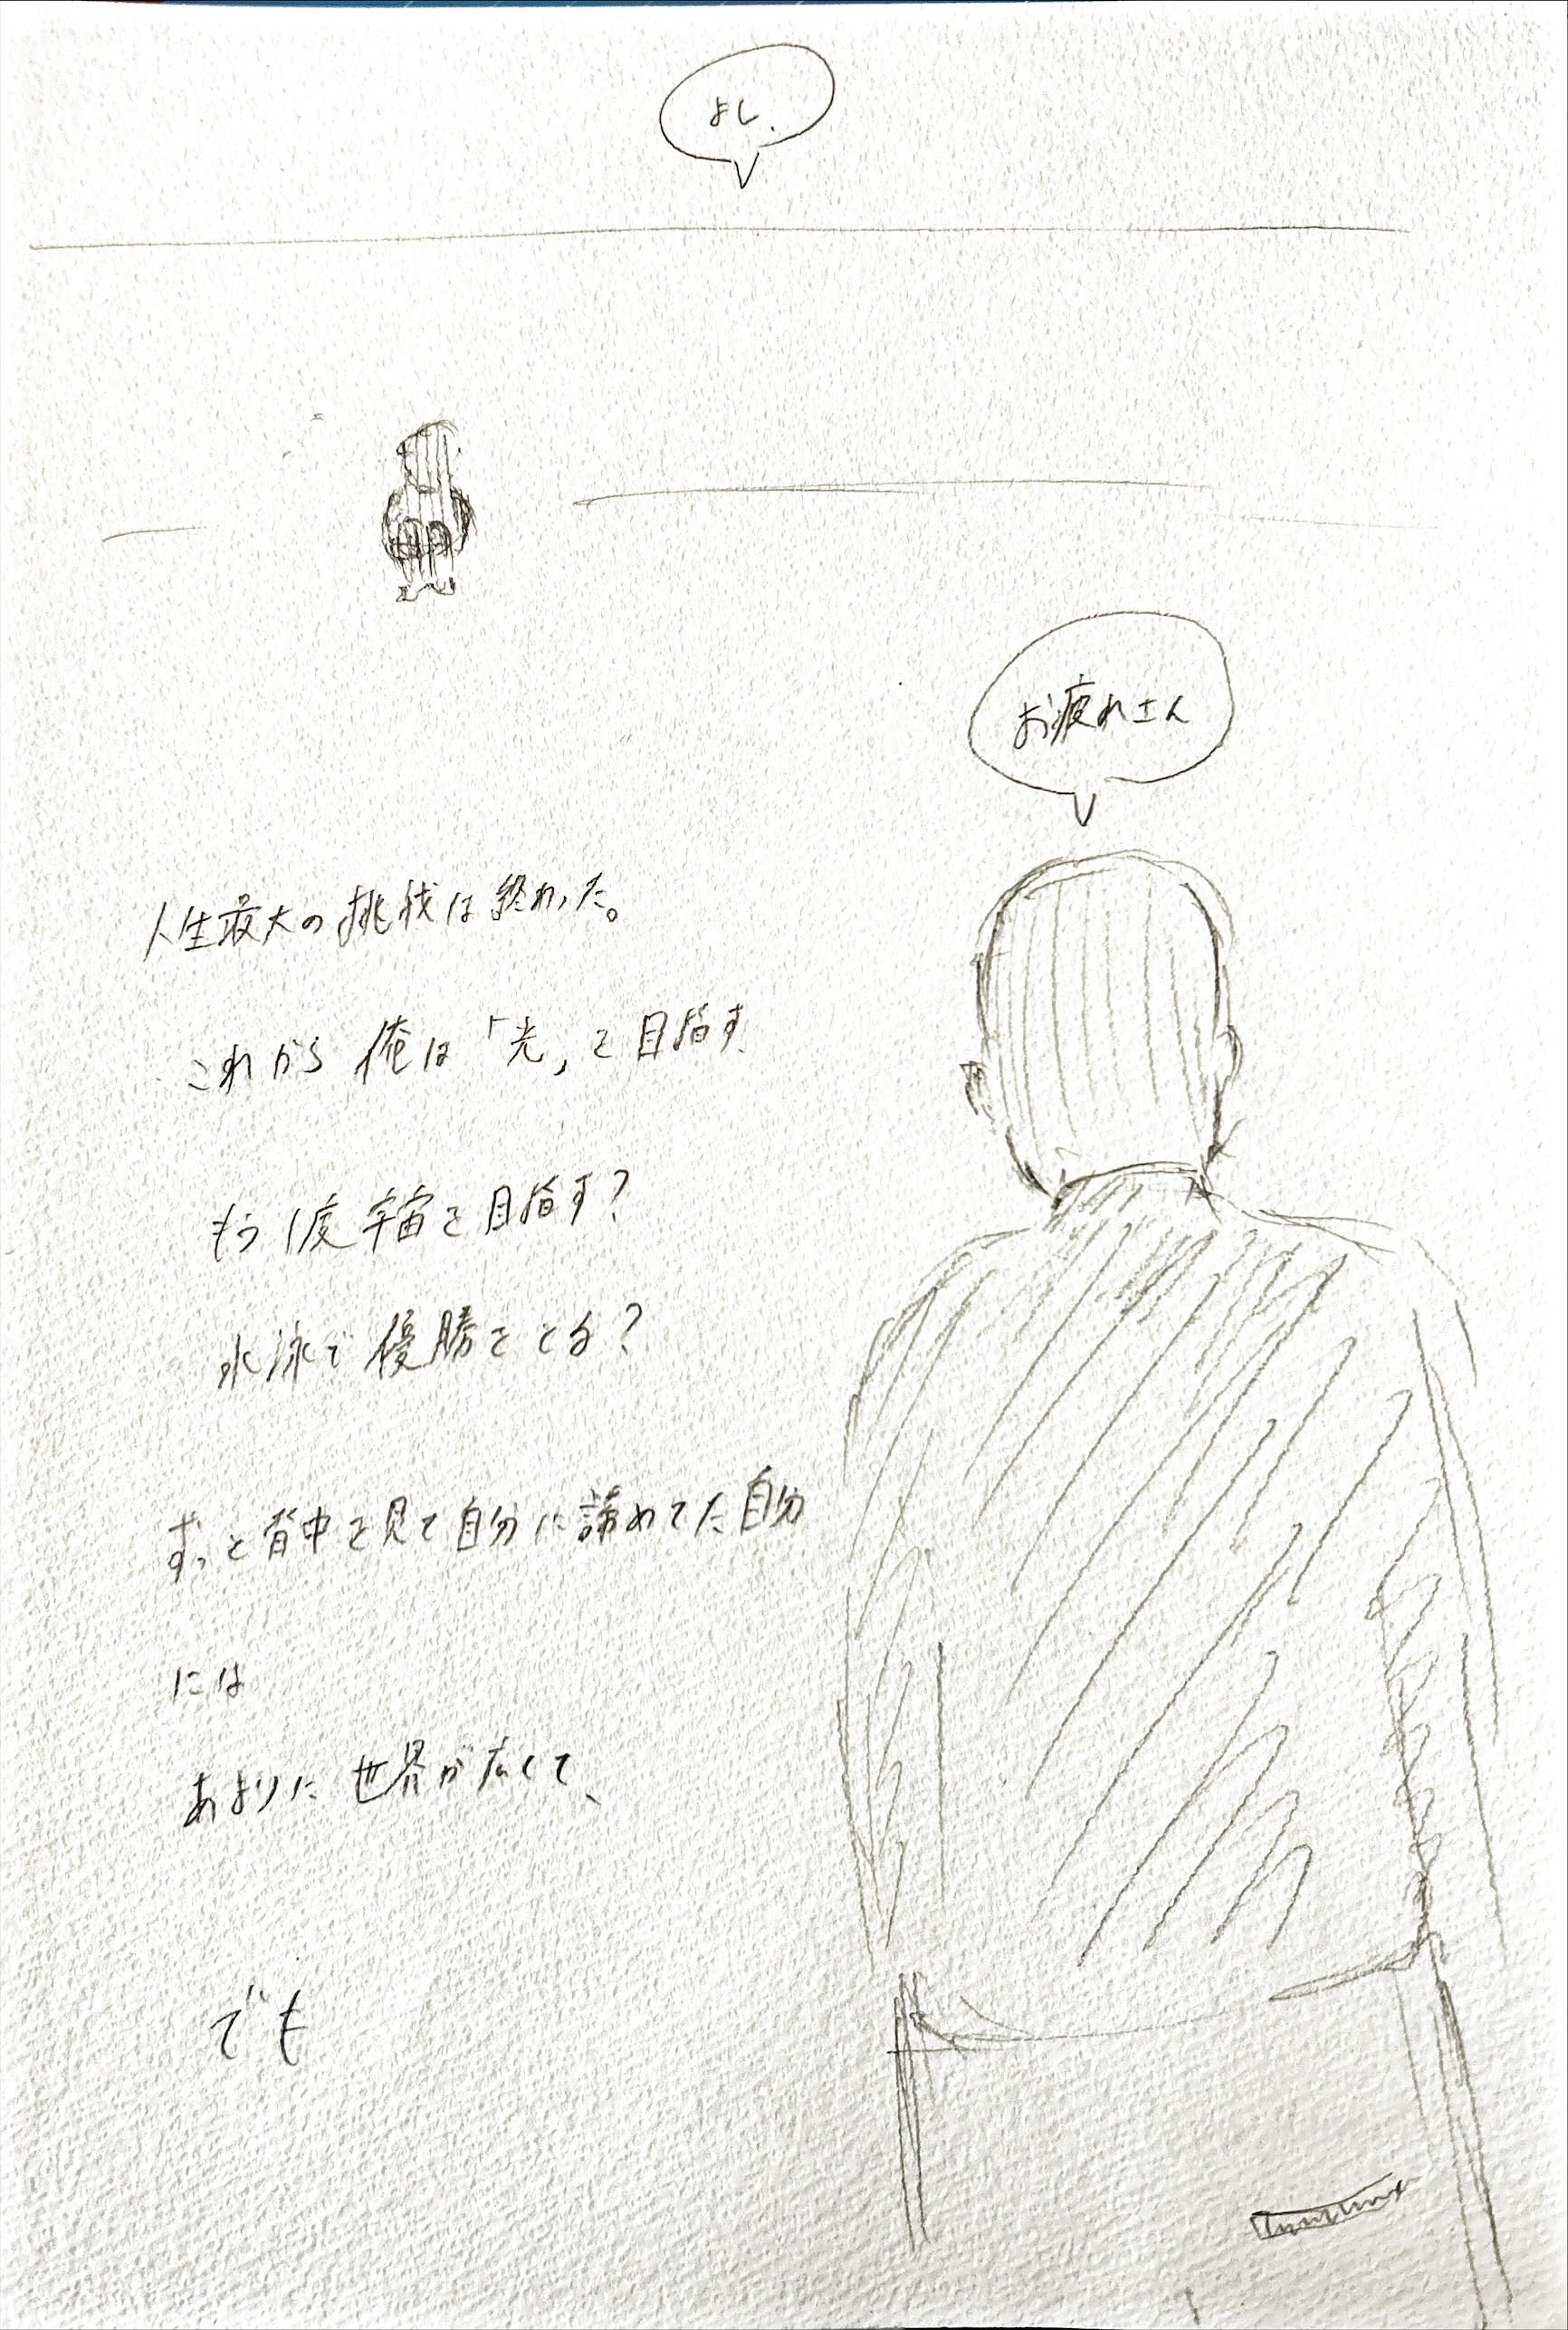 よし.
お疲れさん
人生最大の挑戦は終わった。
これから 俺は「光」を目指す.
もう1度宇宙を目指す?
水泳で優勝をとる?
ずっと背中を見て自分に諦めてた自分
には
あまりに世界が広くて、
でも